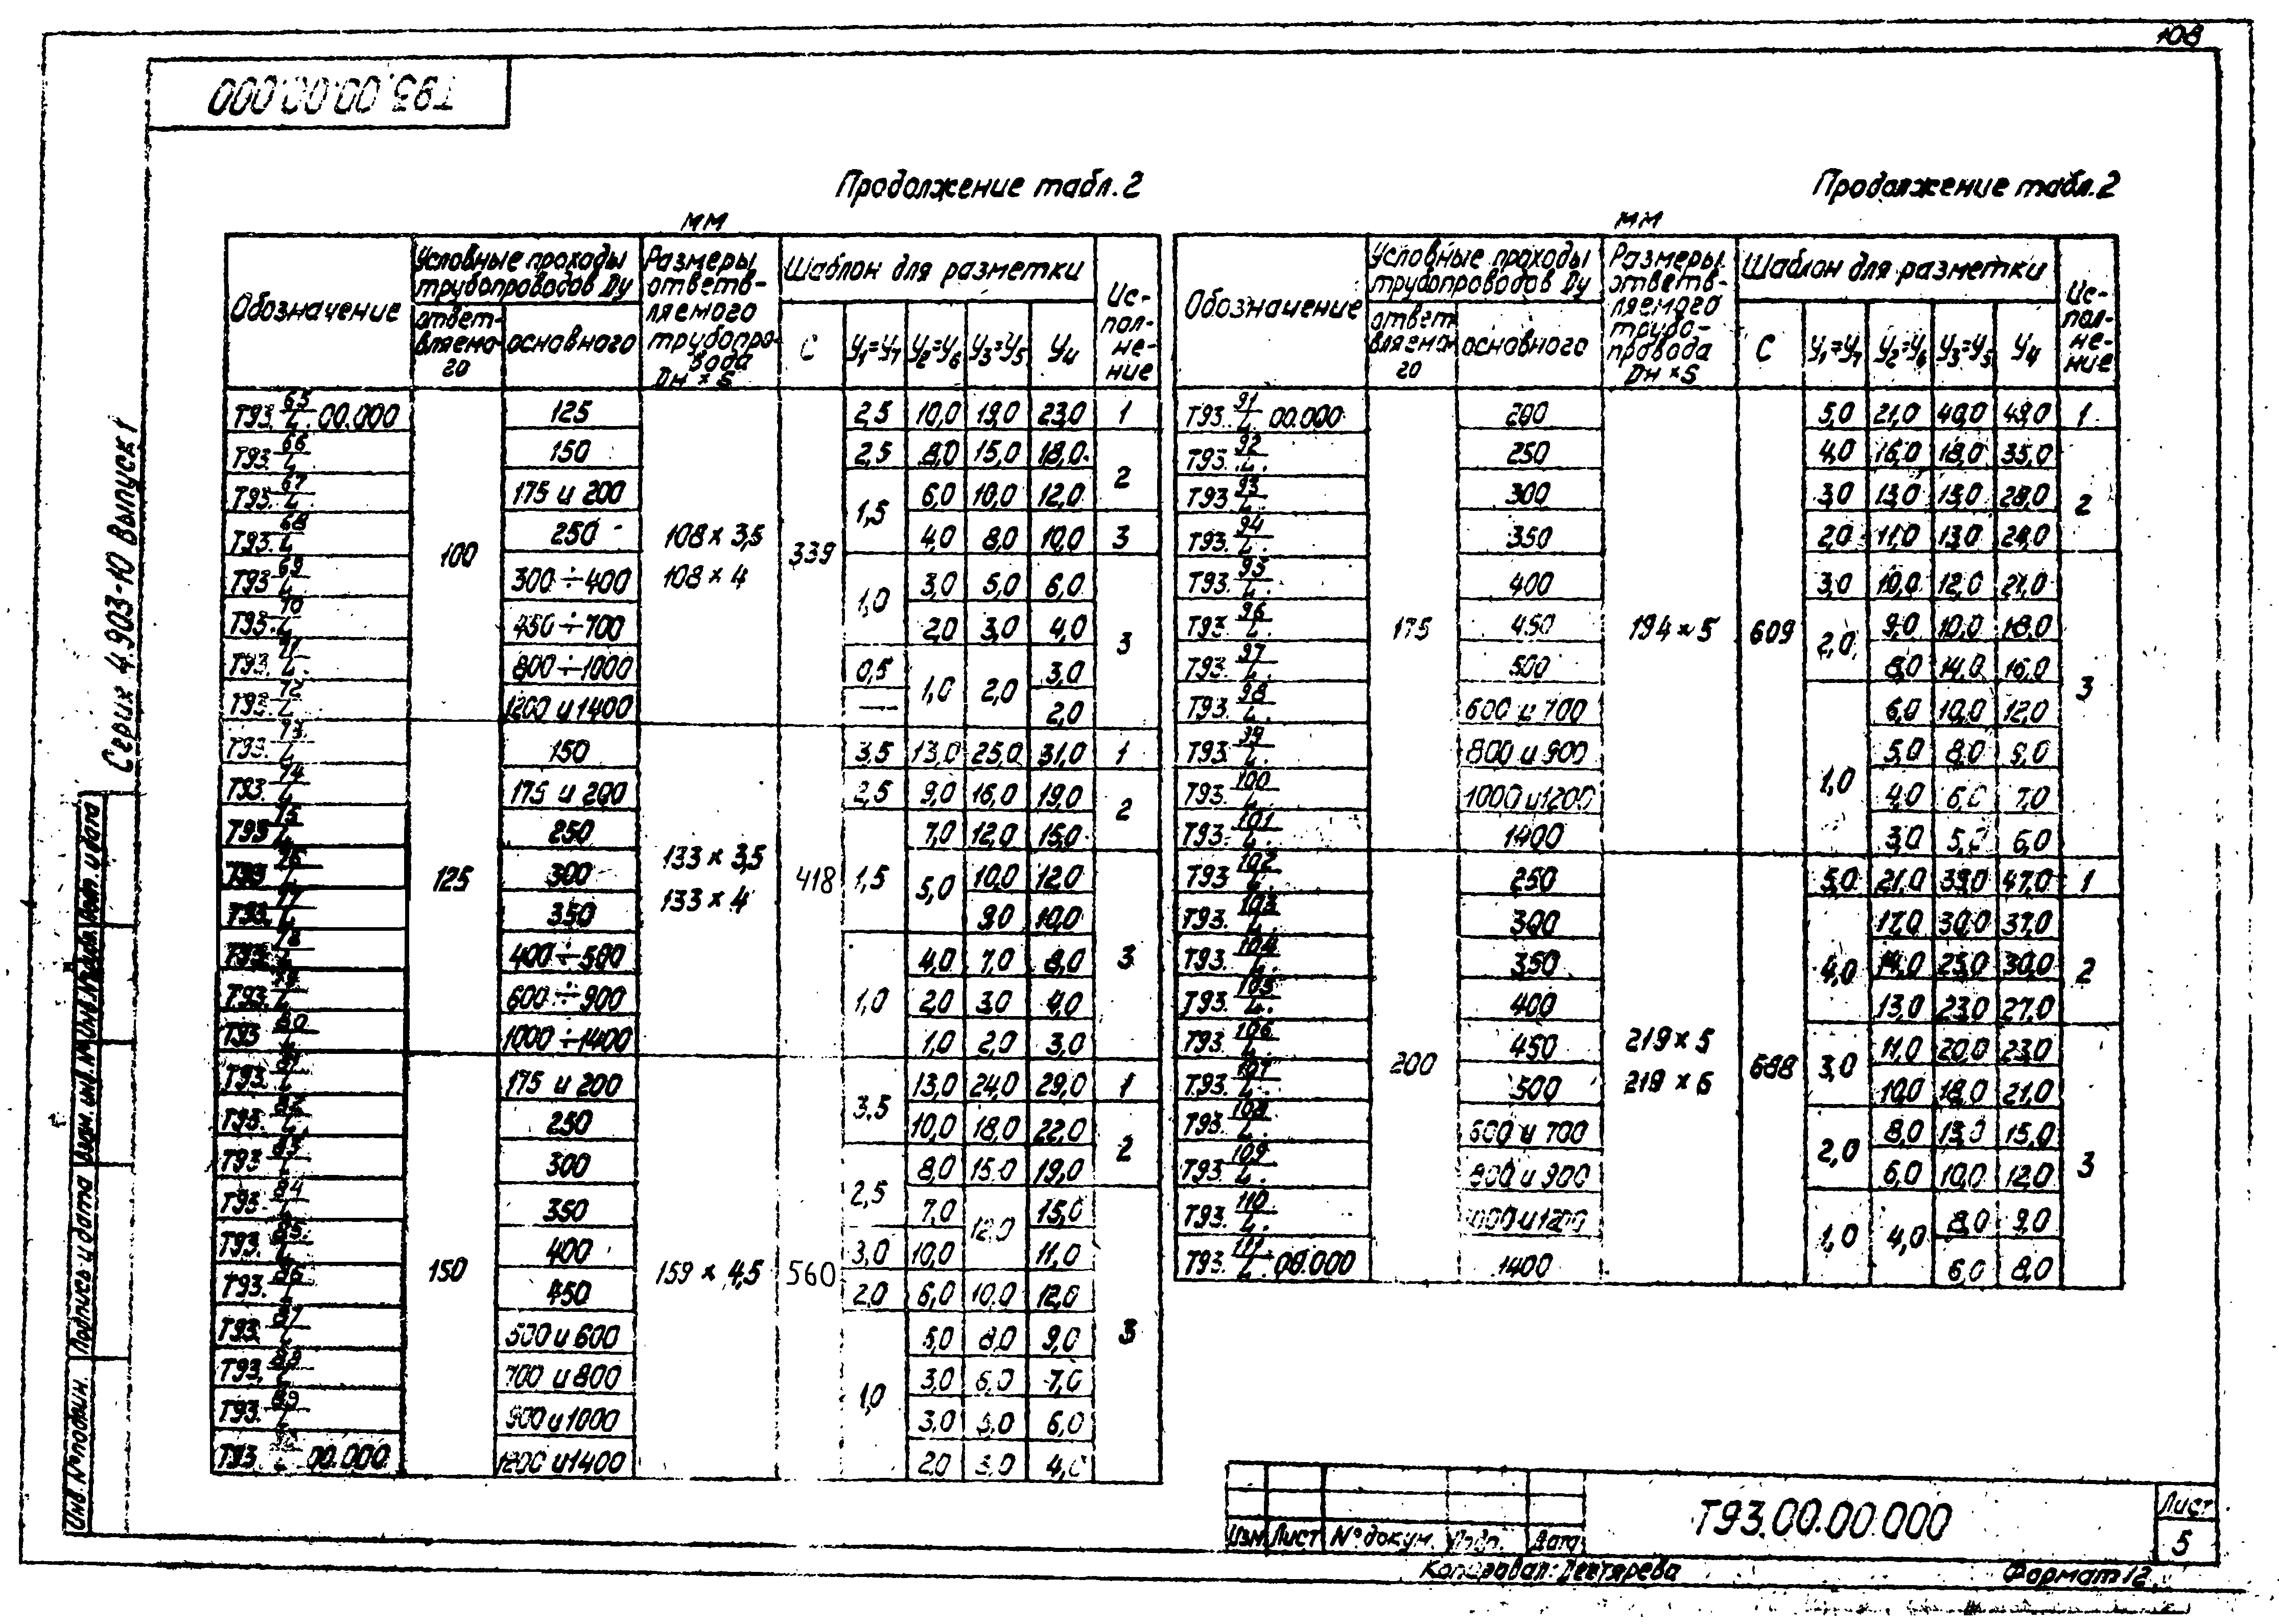 108
Т93.00.00.000
Серия 4.903-10 Выпуск 1
Продолжение табл.2
мм
Обозначение | Условные проходы трубопроводов Dу | Размеры ответвляемого трубопровода Dн × S | Шаблон для разметки | Исполнение
ответвляемого | основного | С | У1=У7 | У2=У6 | У3=У5 | У4
Т93.65/L.00.000 | 100 | 125 | 108 × 3,5 108 × 4 | 339 | 2,5 | 10,0 | 19,0 | 23,0 | 1
Т93.66/L | 150 | 2,5 | 8,0 | 15,0 | 18,0 | 2
Т93.67/L | 175 и 200 | 1,5 | 6,0 | 10,0 | 12,0
Т93.68/L | 250 | 4,0 | 8,0 | 10,0 | 3
Т93.69/L | 300÷400 | 1,0 | 3,0 | 5,0 | 6,0 | 3
Т93.70/L | 450÷700 | 2,0 | 3,0 | 4,0
Т93.71/L. | 800÷1000 | 0,5 | 1,0 | 2,0 | 3,0
Т93.72/L | 1200 и 1400 | — | 2,0
Т93.73/L | 125 | 150 | 133 × 3,5 133 × 4 | 418 | 3,5 | 13,0 | 25,0 | 31,0 | 1
Т93.74/L | 175 и 200 | 2,5 | 9,0 | 16,0 | 19,0 | 2
Т93 75/L | 250 | 1,5 | 7,0 | 12,0 | 15,0
Т93 | 300 | 5,0 | 10,0 | 12,0 | 3
Т93. | 350 | 9,0 | 10,0
Т93. | 400÷500 | 1,0 | 4,0 | 7,0 | 8,0
Т93. | 600÷900 | 2,0 | 3,0 | 4,0
Т93 80/L | 1000÷1400 | 1,0 | 2,0 | 3,0
Т93. | 150 | 175 и 200 | 159 × 4,5 | 560 | 3,5 | 13,0 | 24,0 | 29,0 | 1
Т93. | 250 | 10,0 | 18,0 | 22,0 | 2
Т93 | 300 | 2,5 | 8,0 | 15,0 | 19,0
Т93 84/L | 350 | 7,0 | 12,0 | 15,0 | 3
Т93. 85/L | 400 | 3,0 | 10,0 | 11,0
Т93. 86/L | 450 | 2,0 | 6,0 | 10,0 | 12,0
Т93. 87/L | 500 и 600 | 1,0 | 5,0 | 8,0 | 9,0
Т93. | 700 и 800 | 3,0 | 6,0 | 7,0
Т93. | 900 и 1000 | 3,0 | 5,0 | 6,0
Т93 00.000 | 1200 и 1400 | 2,0 | 3,0 | 4,0
Продолжение табл.2
мм
Обозначение | Условные проходы трубопроводов Dу | Размеры ответвляемого трубопровода Dн × S | Шаблон для разметки | Исполнение
ответвляемого | основного | С | У1=У7 | У2=У6 | У3=У5 | У4
Т93.91/L 00.000 | 175 | 200 | 194 × 5 | 609 | 5,0 | 21,0 | 40,0 | 49,0 | 1
Т93.92/L. | 250 | 4,0 | 16,0 | 18,0 | 35,0 | 2
Т93.93/L. | 300 | 3,0 | 13,0 | 15,0 | 28,0
Т93.94/L. | 350 | 2,0 | 11,0 | 13,0 | 24,0
Т93.95/L. | 400 | 3,0 | 10,0 | 12,0 | 21,0 | 3
Т93.96/L. | 450 | 2,0 | 9,0 | 10,0 | 18,0
Т93.97/L. | 500 | 8,0 | 14,0 | 16,0
Т93.98/L. | 600 и 700 | 1,0 | 6,0 | 10,0 | 12,0
Т93.99/L. | 800 и 900 | 5,0 | 8,0 | 9,0
Т93.100/L. | 1000 и 1200 | 4,0 | 6,0 | 7,0
Т93.101/L. | 1400 | 3,0 | 5,0 | 6,0
Т93.102/L. | 200 | 250 | 219 × 5 219 × 6 | 688 | 5,0 | 21,0 | 39,0 | 47,0 | 1
Т93.103/L. | 300 | 4,0 | 17,0 | 30,0 | 37,0 | 2
Т93.104/L. | 350 | 14,0 | 25,0 | 30,0
Т93.105/L. | 400 | 13,0 | 23,0 | 27,0
Т93.106/L. | 450 | 3,0 | 11,0 | 20,0 | 23,0 | 3
Т93.107/L. | 500 | 10,0 | 18,0 | 21,0
Т93.108/L. | 600 и 700 | 2,0 | 8,0 | 13,0 | 15,0
Т93.109/L. | 800 и 900 | 6,0 | 10,0 | 12,0
Т93.110/L. | 1000 и 1200 | 1,0 | 4,0 | 8,0 | 9,0
Т93.111/L. 00.000 | 1400 | 6,0 | 8,0
Инв.№подлин. Подпись и дата Взам.инв.№ Инв.№дубл. Подп. и дата
Изм Лист №докум. Подп. Дата
Т93.00.00.000
Лист
5
Копировал: Дегтярева
Формат 12